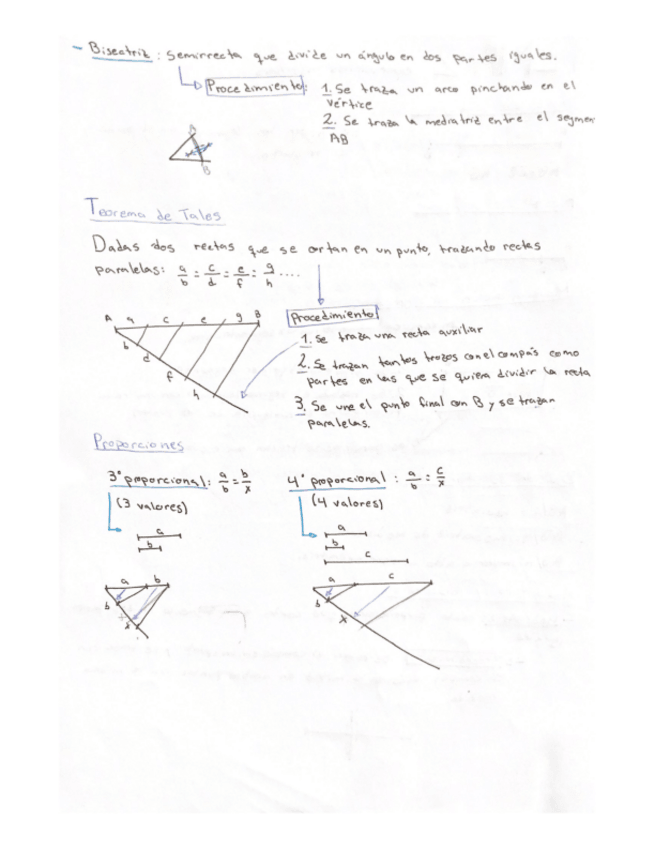 - Bisectriz: Semirrecta que divide un ángulo en dos partes iguales.
Procedimiento: 1. Se traza un arco pinchando en el
vértice
2. Se traza la mediatriz entre el segmen
AB
B
Teorema de Tales
Dadas dos rectas que se cortan en un punto, trazando rectas
paralelas: a/b = c/d = e/f = g/h ....
A a c e g B
b
d
f
h
Procedimiento
1. Se traza una recta auxiliar
2. Se trazan tantos trozos con el compás como
partes en las que se quiera dividir la recta
3. Se une el punto final con B y se trazan
paralelas.
Proporciones
3º proporcional: a/b = b/x
(3 valores)
a
b
a b
b
x
4º proporcional: a/b = c/x
(4 valores)
a
b
c
a c
b
x